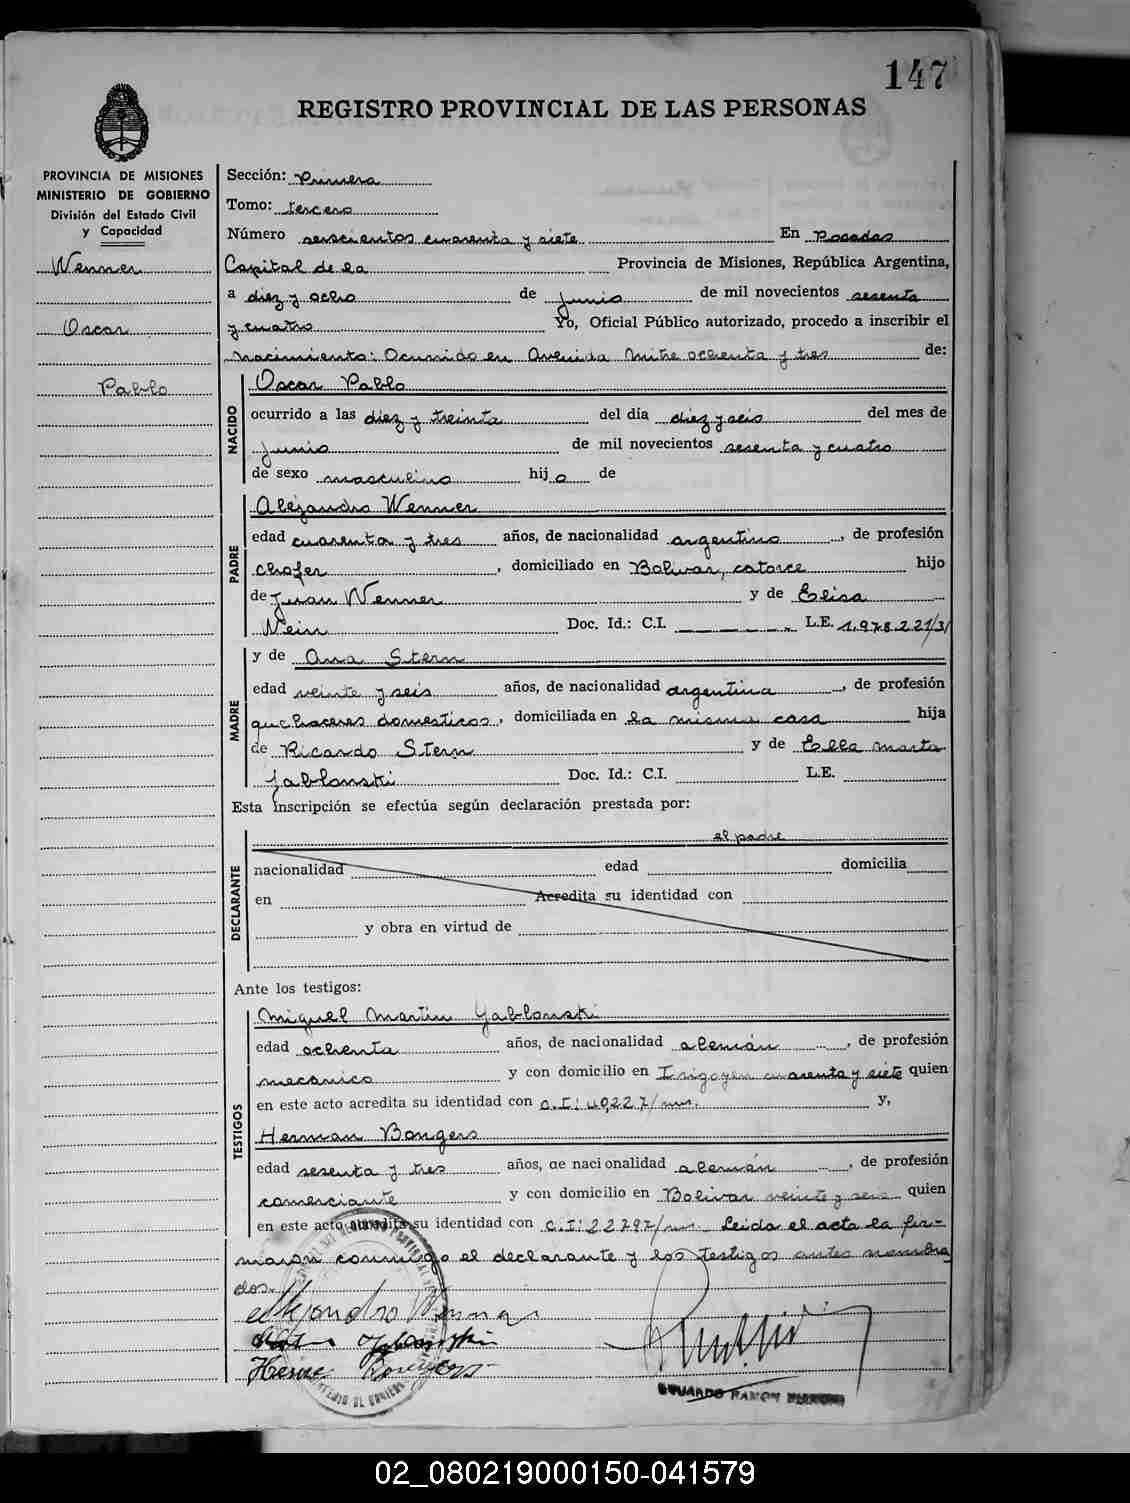 147
REGISTRO PROVINCIAL DE LAS PERSONAS
PROVINCIA DE MISIONES
MINISTERIO DE GOBIERNO
División del Estado Civil
y Capacidad
Wenner
Oscar
Pablo
Sección: Primera
Tomo: tercero
Número seiscientos cuarenta y siete En Posadas
Capital de la Provincia de Misiones, República Argentina,
a diez y ocho de junio de mil novecientos sesenta
y cuatro Yo, Oficial Público autorizado, procedo a inscribir el
nacimiento: Ocurrido en Avenida Mitre ochenta y tres de:
NACIDO
Oscar Pablo
ocurrido a las diez y treinta del día diez y seis del mes de
junio de mil novecientos sesenta y cuatro
de sexo masculino hijo de
PADRE
Alejandro Wenner
edad cuarenta y tres años, de nacionalidad argentino, de profesión
chofer, domiciliado en Bolivar, catorce hijo
de Juan Wenner y de Elisa
Wein Doc. Id.: C.I. L.E. 1.978.221/31
MADRE
y de Ana Stern
edad veinte y seis años, de nacionalidad argentina, de profesión
quehaceres domesticos, domiciliada en la misma casa hija
de Ricardo Stern y de Ella Marta
Jablonski Doc. Id.: C.I. L.E.
Esta inscripción se efectúa según declaración prestada por:
DECLARANTE
el padre
nacionalidad edad domicilia
en Acredita su identidad con
y obra en virtud de
Ante los testigos:
TESTIGOS
Miguel Martin Yablonski
edad ochenta años, de nacionalidad alemán, de profesión
mecánico y con domicilio en Irigoyen cuarenta y siete quien
en este acto acredita su identidad con C.I: 40,227/mis. y,
Herman Bongers
edad sesenta y tres años, de nacionalidad alemán, de profesión
comerciante y con domicilio en Bolivar veinte y seis quien
en este acto acredita su identidad con C.I: 22797/mis. Leída el acta la fir-
maron conmigo el declarante y los testigos antes nombra
dos.
Alejandro Wenner
EDUARDO RAMON
02_080219000150-041579